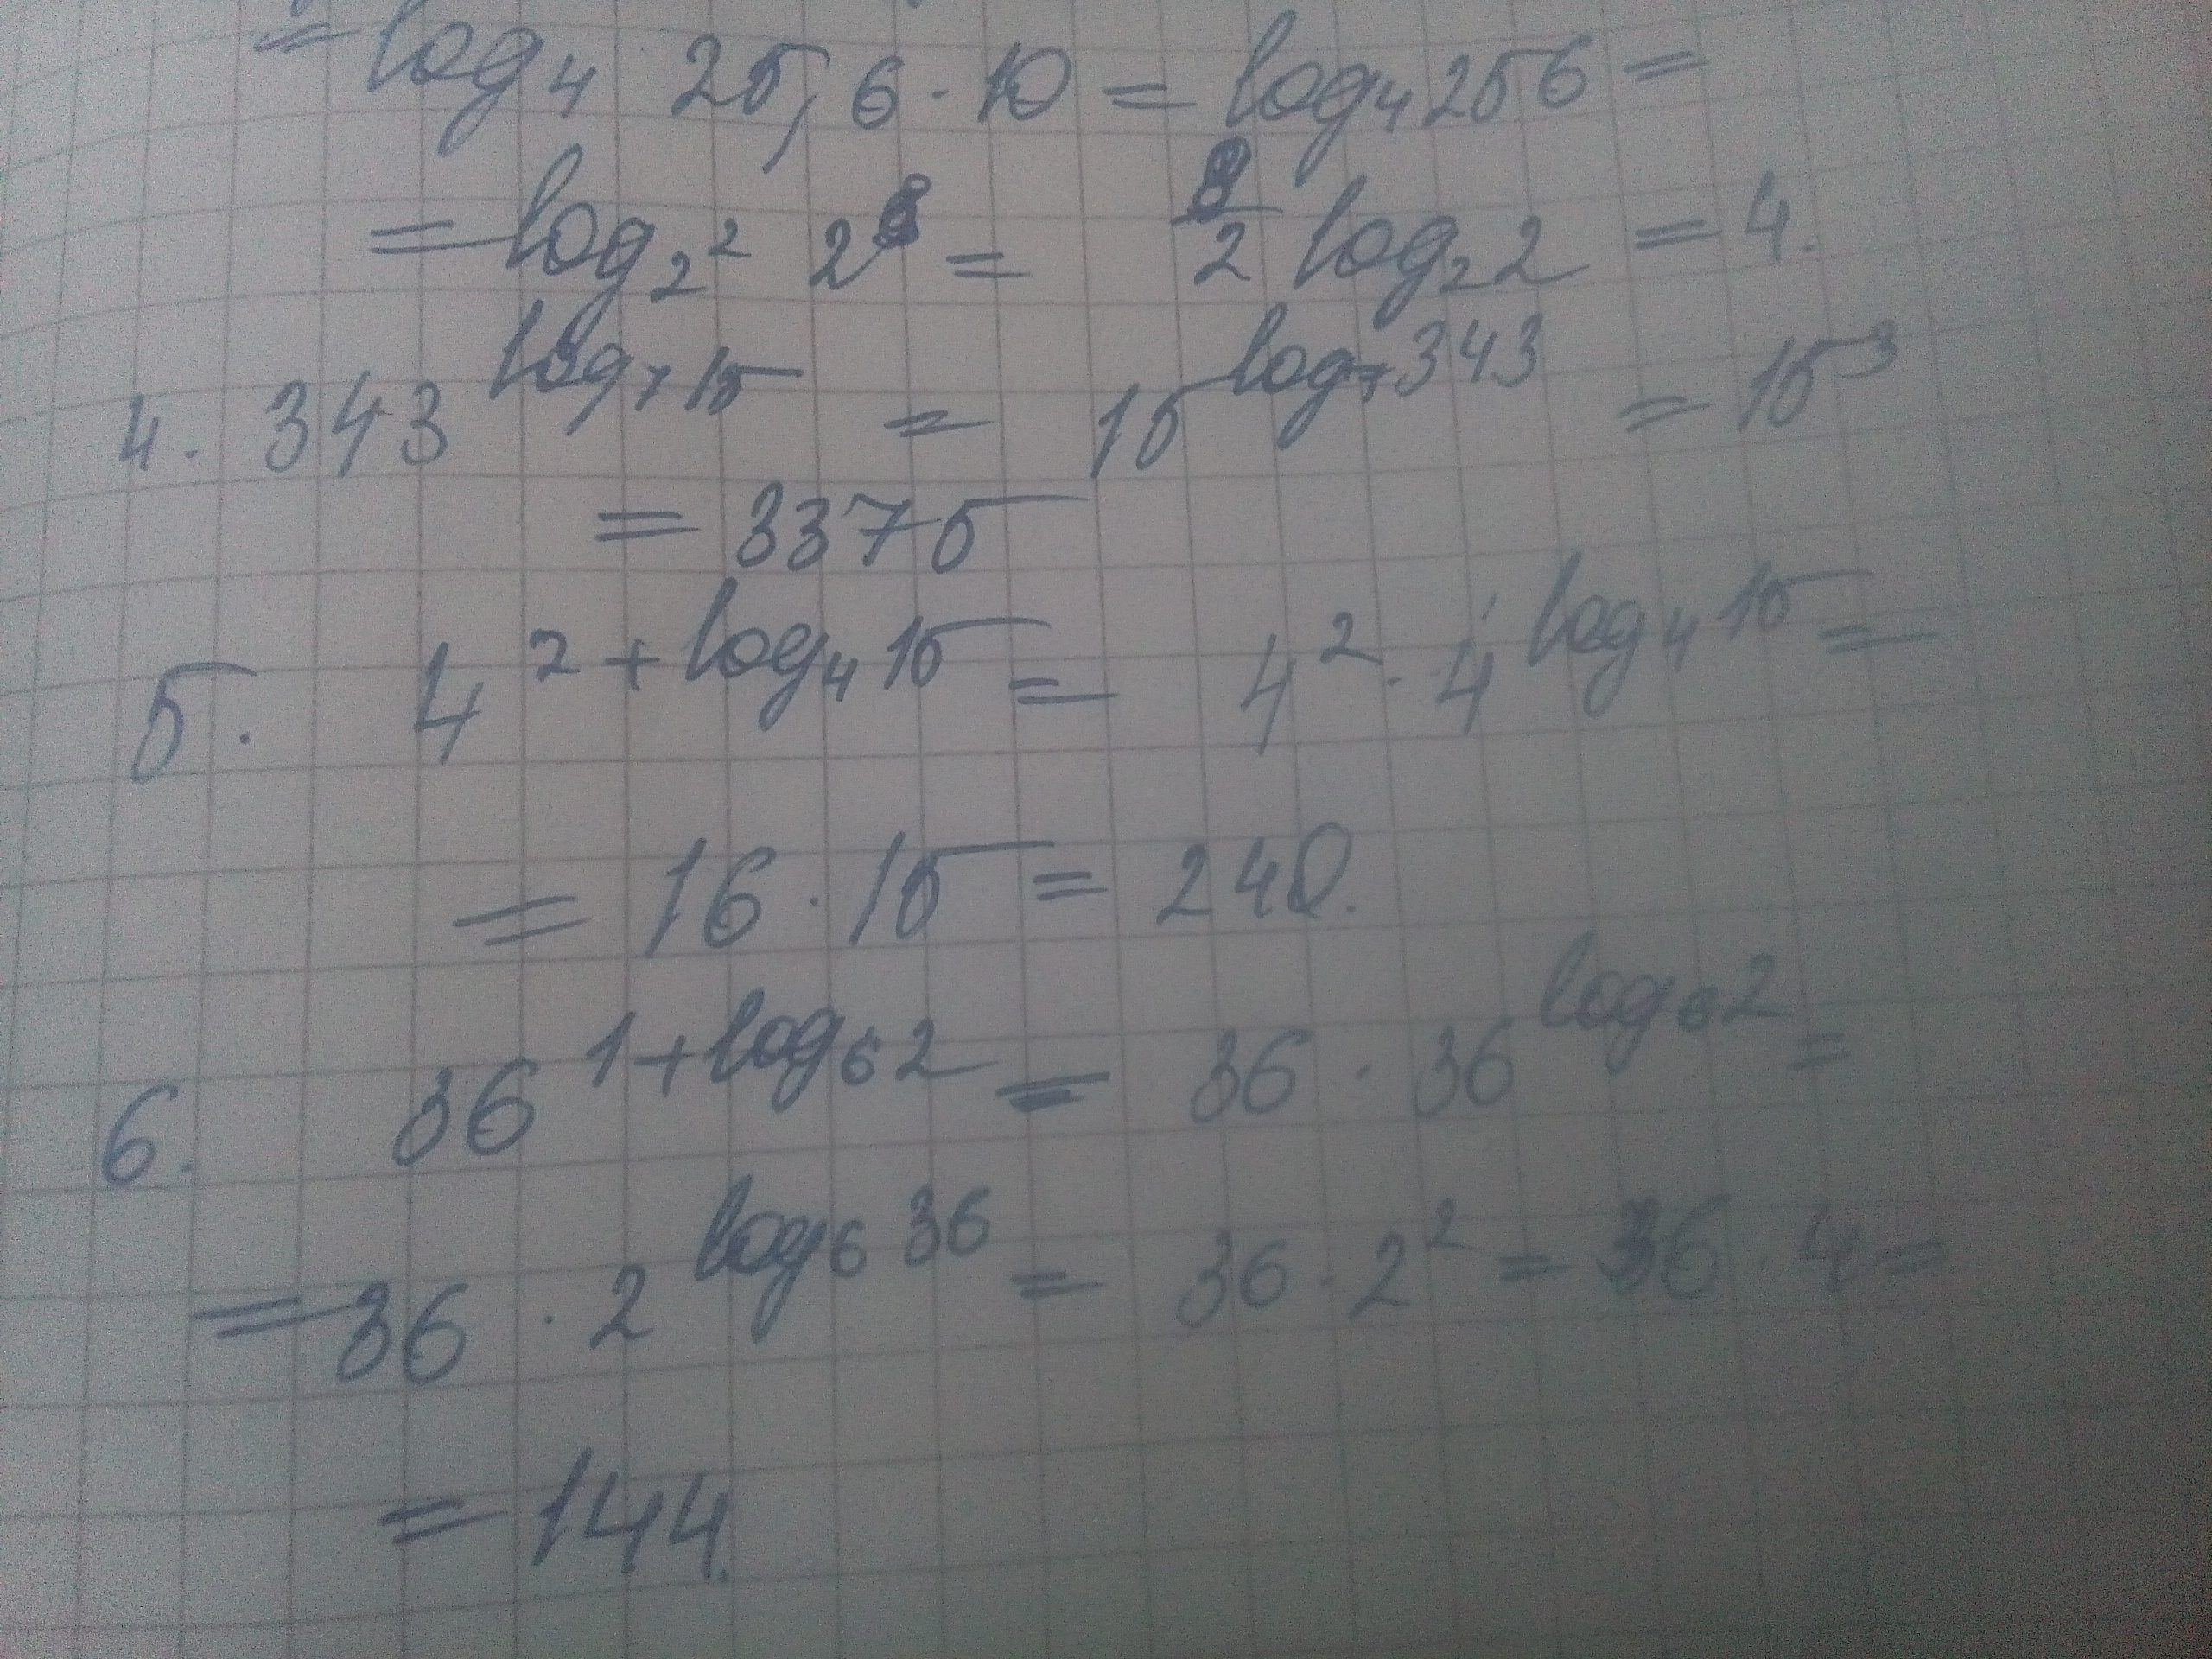 = log₄ 25,6 · 10 = log₄ 256 =
= log₂² 2⁸ = 8/2 log₂ 2 = 4.
4. 343^(log₇ 15) = 15^(log₇ 343) = 15³
= 3375
5. 4^(2 + log₄ 15) = 4² · 4^(log₄ 15) =
= 16 · 15 = 240.
6. 36^(1 + log₆ 2) = 36 · 36^(log₆ 2) =
= 36 · 2^(log₆ 36) = 36 · 2² = 36 · 4 =
= 144.